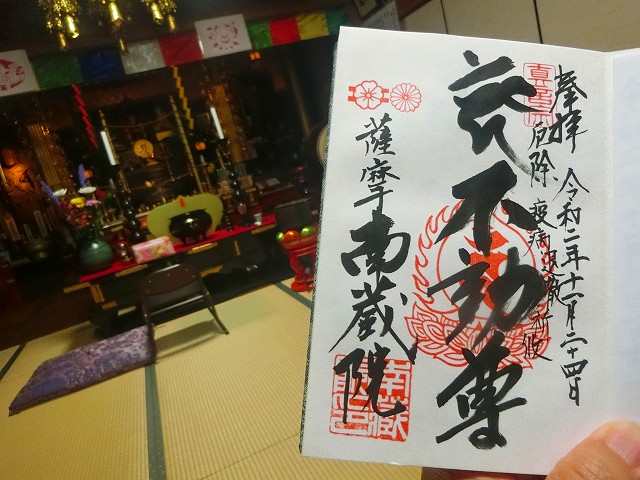 奉拝 令和二年十一月二十四日
厄除 疫病退散祈攸
不動尊
薩摩南蔵院